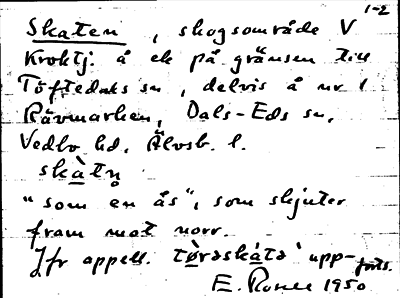 1-2
Skaten, skogsområde V
Kroktj. å ek på gränsen till
Töftedals sn, delvis å nr 1
Rävmarken, Dals-Eds sn,
Vedbo hd, Älvsb. l.
skàtn̥
"som en ås", som skjuter
fram mot norr.
Jfr appell. tørəskàtə upp-
forts.
E. Rosell 1950